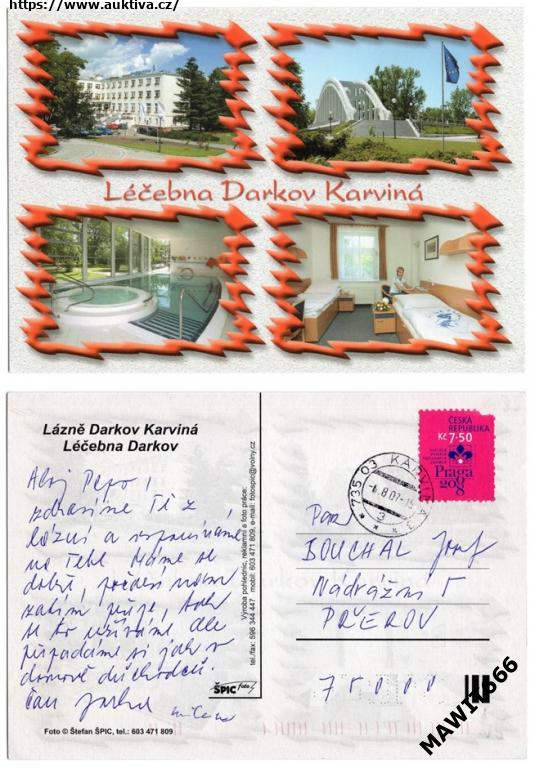 https://www.auktiva.cz/
Léčebna Darkov Karviná
Lázně Darkov Karviná
Léčebna Darkov
Ahoj Pepo,
zdravíme Tě z
lázní a vzpomínáme
na Tebe. Máme se
dobře, počasí nám
zatím přeje, tak
si to užíváme. Ale
připadáme si jak v
domově důchodců.
Čau
Milena
Foto © Štefan ŠPIC, tel.: 603 471 809
Výroba pohlednic, reklamní a foto práce:
tel./fax: 596 344 447 mobil: 603 471 809, e-mail: fotospic@volny.cz
ŠPIC foto
ČESKÁ
REPUBLIKA
Kč 7·50
Praga
2008
735 03 KARVINÁ 3
Pan
BOUCHAL Josef
Nádražní 5
PŘEROV
75000
MAWI1666